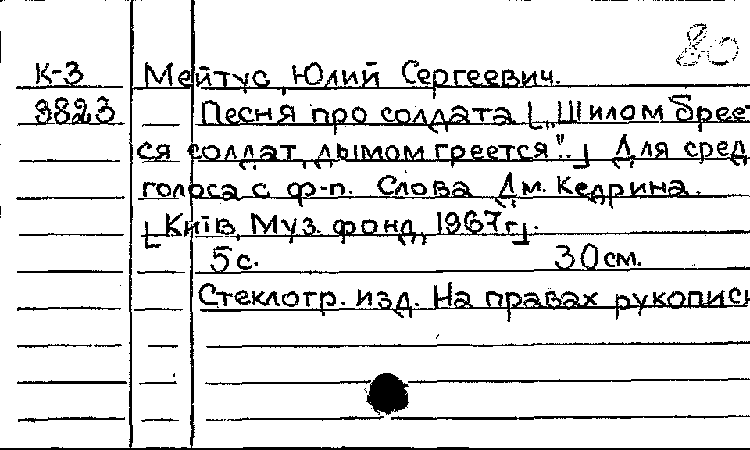 80
К-3 Мейтус, Юлий Сергеевич.
8823 Песня про солдата [„Шилом брее
ся солдат, дымом греется"..] Для сред
голоса с ф-п. Слова Дм. Кедрина.
[Київ, Муз. фонд, 1967г].
5с. 30см.
Стеклотр. изд. На правах рукопис